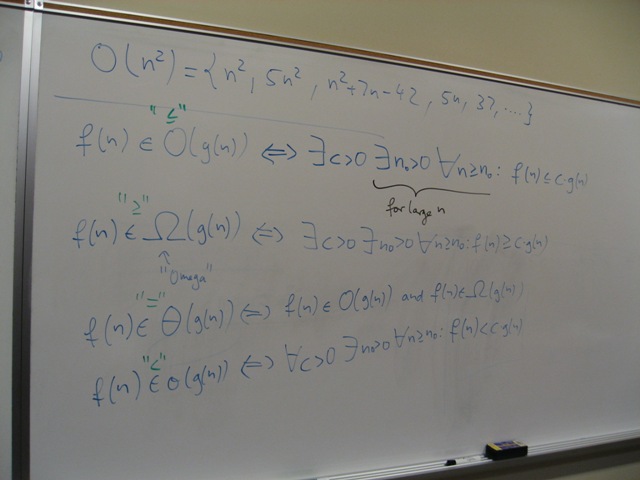 O(n²) = {n², 5n², n²+7n-42, 5n, 37, ...}
"≤"
f(n) ∈ O(g(n)) ⇔ ∃c>0 ∃n₀>0 ∀n≥n₀: f(n) ≤ c·g(n)
for large n
"≥"
f(n) ∈ Ω(g(n)) ⇔ ∃c>0 ∃n₀>0 ∀n≥n₀: f(n) ≥ c·g(n)
"Omega"
"="
f(n) ∈ Θ(g(n)) ⇔ f(n) ∈ O(g(n)) and f(n) ∈ Ω(g(n))
"<"
f(n) ∈ o(g(n)) ⇔ ∀c>0 ∃n₀>0 ∀n≥n₀: f(n) < c g(n)